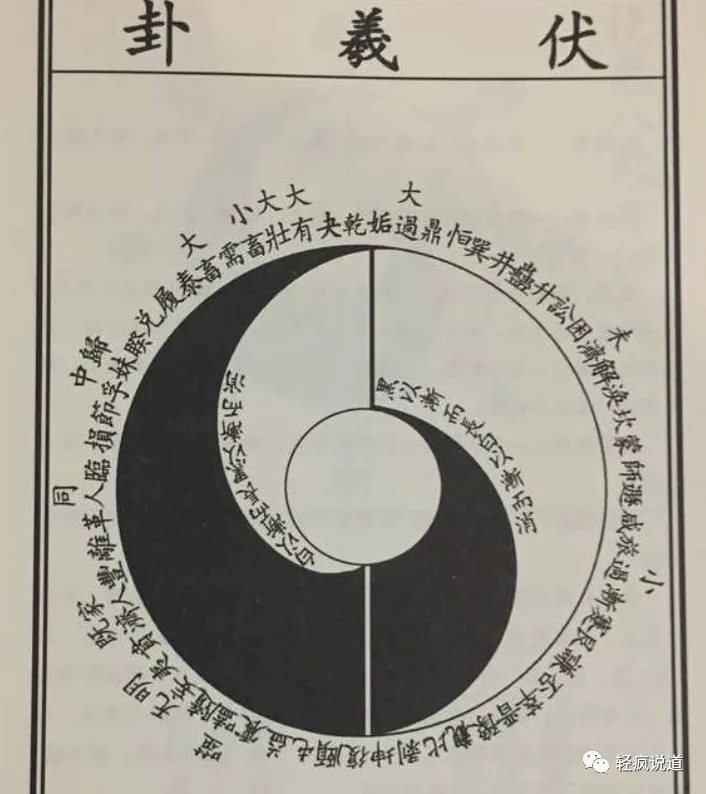 伏羲卦
乾夬大有大壯小畜需大畜泰履兌睽歸妹中孚節損臨同人革離豐家人既濟賁明夷无妄隨噬嗑震益屯頤復
姤大過鼎恒巽井蠱升訟困未濟解渙坎蒙師遯咸旅小過漸蹇艮謙否萃晉豫觀比剝坤
白以漸而長黑以漸而消
黑以漸而長白以漸而消
轻疯说道